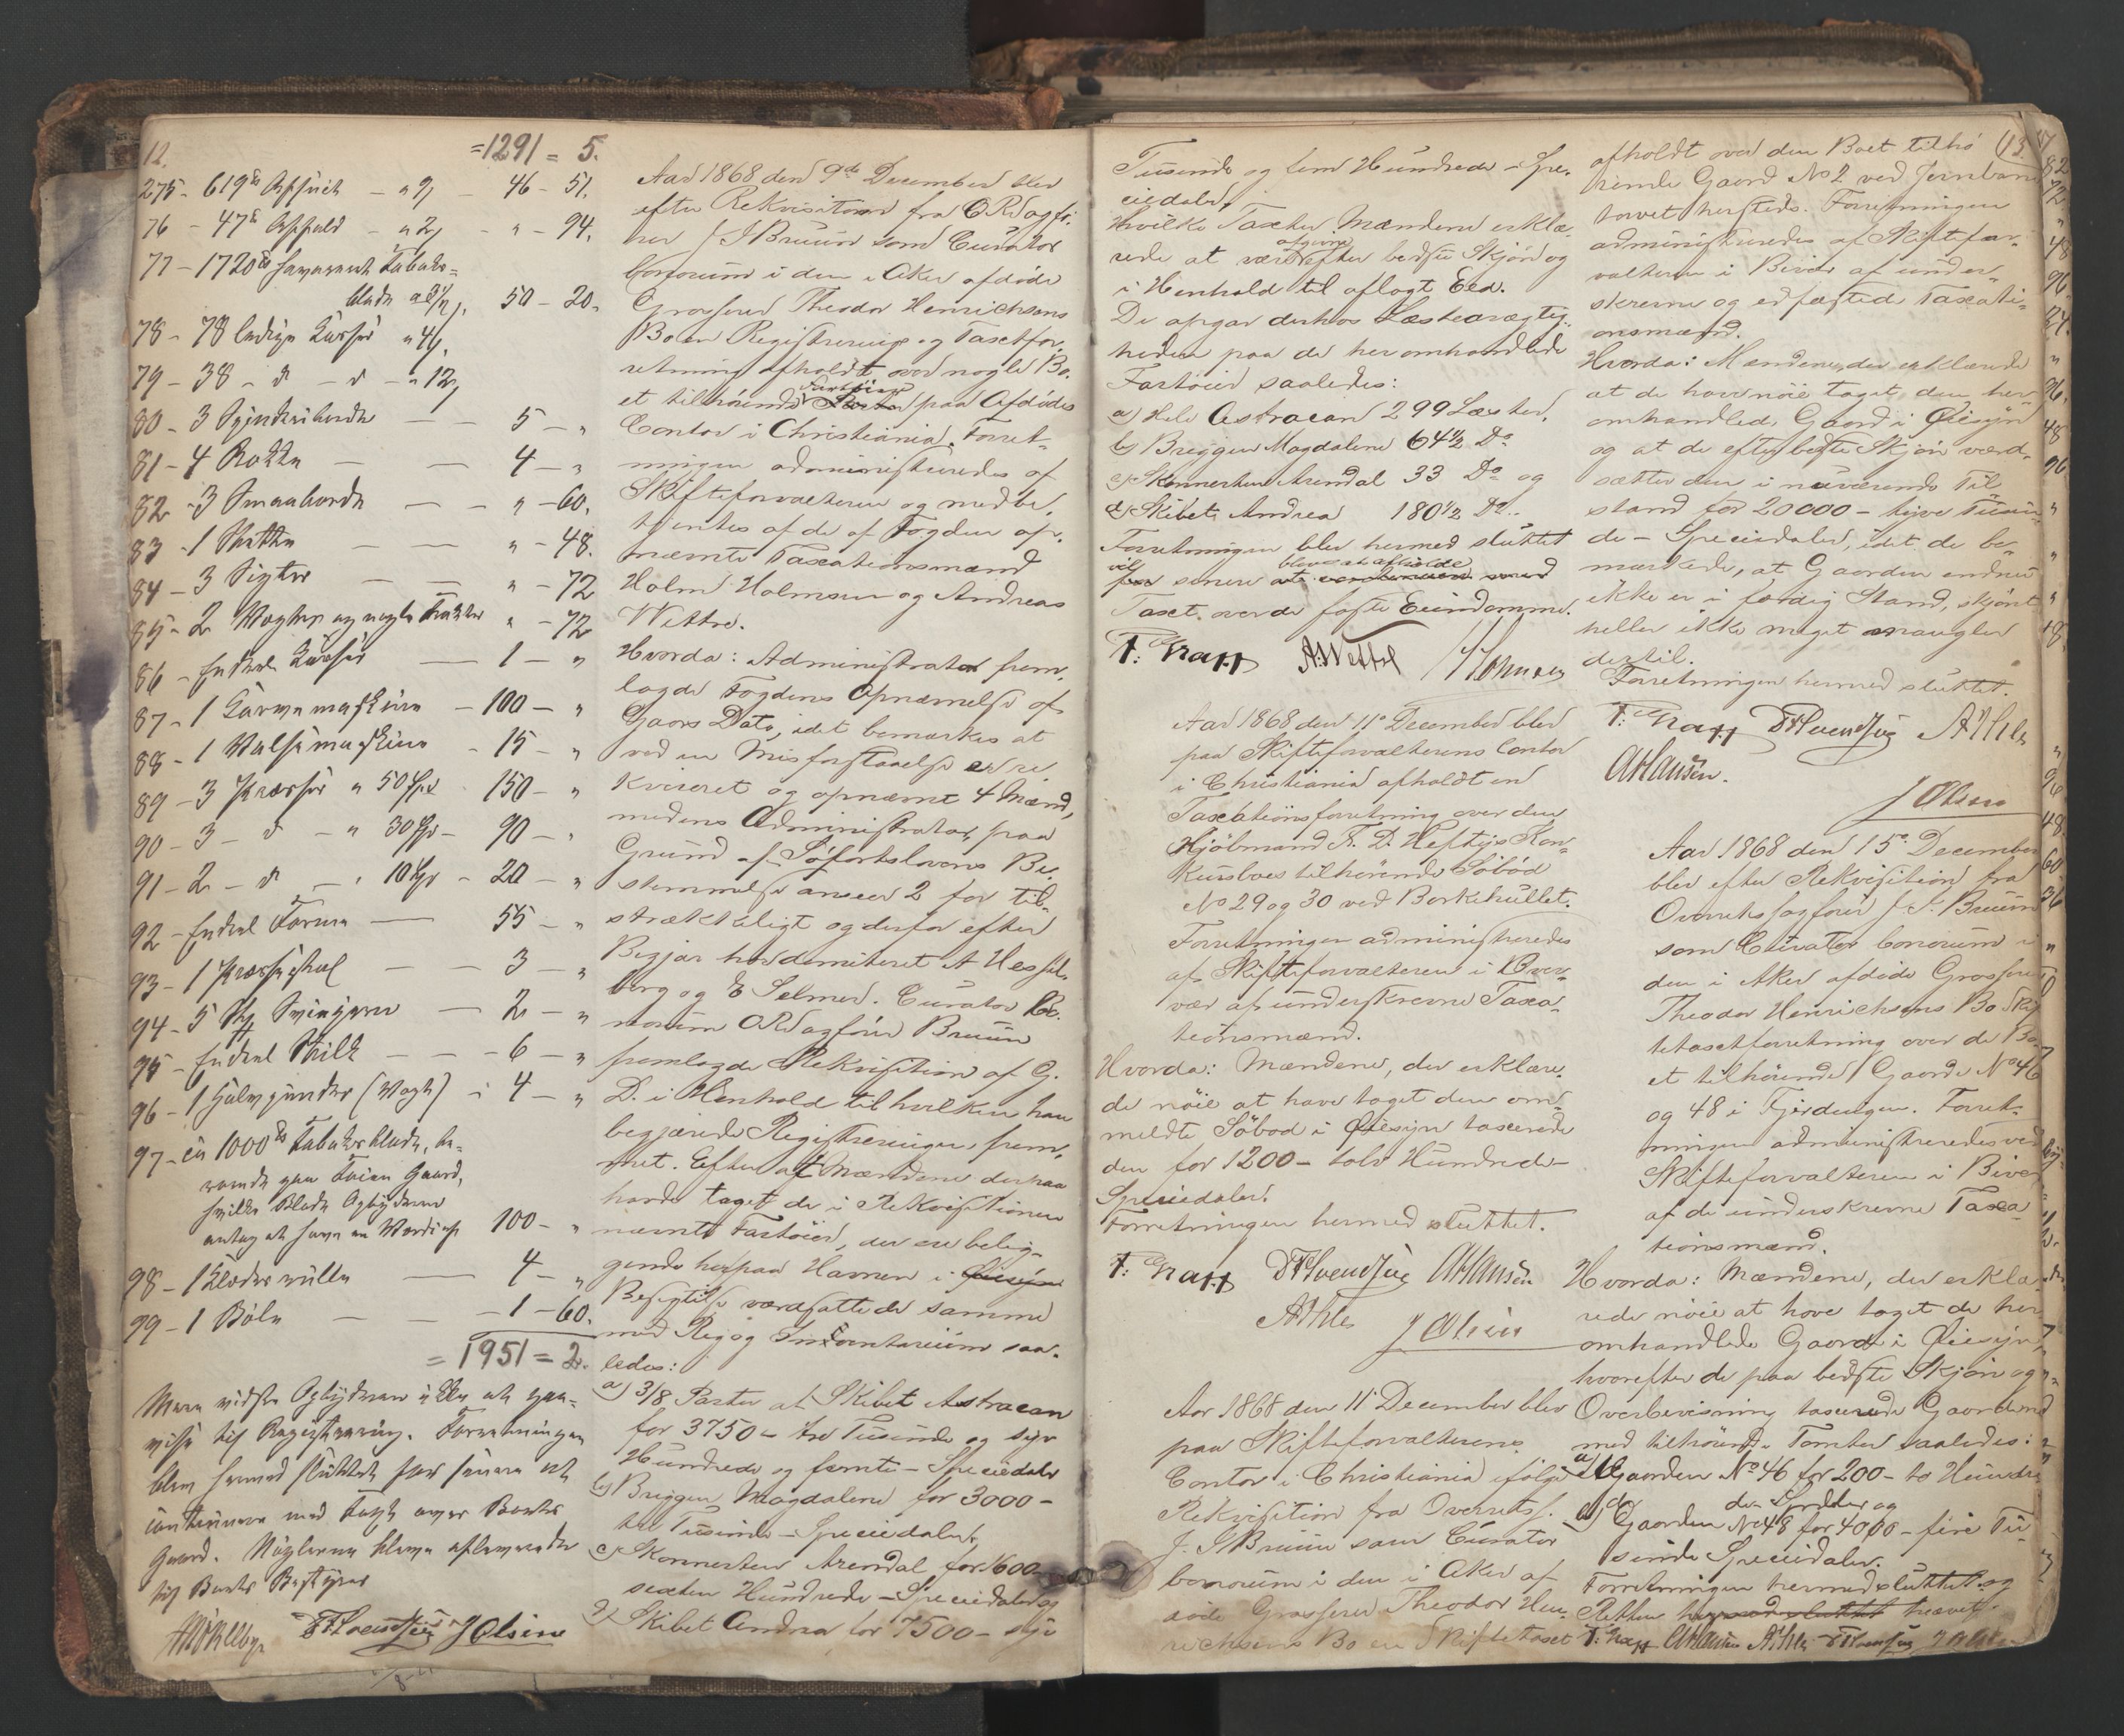 12.
= 1291 = 5.
275 - 619 ℔ - a 9 - 46 - 51.
76 - 47 ℔ Affald - a 2 - " - 94.
77 - 1720 ℔ Tabaks-
blade 50 - 20.
78 - 78 ledige Kasser a 4
79 - 38 - d - d - a 12
80 - 3 5 - "
81 - 4 Rokke - 4 - "
82 - 3 Smaaborde - " - 60.
83 - 1 - " - 48.
84 - 3 Sigter - " - 72
85 - 2 Vegter og nogle Trakter " - 72
86 - Endeel Kasser - 1 - "
87 - 1 Karvemaskine - 100 - "
88 - 1 Valsemaskine - 15 - "
89 - 3 Presser a 50 Spd 150 - "
90 - 3 - d - a 30 Spd - 90 - "
91 - 2 - d - " 10 Spd - 20 - "
92 - Endeel Forme - 55 - "
93 - 1 - 3 - "
94 - 5 - 2 - "
95 - Endeel - 6 - "
96 - 1 (Vogn) - 4 - "
97 - ca 1000 ℔ Tabaksblade, be-
roende paa Toien Gaard,
hvilke Blade Opbyderne
antog at have en Værdi af 100 - "
98 - 1 Klæderulle - 4 - "
99 - 1 - 1 - 60.
= 1951 = 2.
Mere vidste Opbyderne ikke at paa-
vise til Registrering. Forretningen
blev hermed sluttet for senere at
continuere med Taxt over Boets
Gaard. Nøglerne bleve afleverede
til Boets Bestyrer
J Olsen
Aar 1868 den 9de December blev
efter Rekvisition fra ORSagfø-
rer J. J Bruun som Curator
bonorum i den i Aker afdøde
Grosserer Theodor Henrichsens
Bo en Registrerings og Taxtfor-
retning afholdt over nogle Bo-
et tilhørende Fartøier paa Afdødes
Contor i Christiania. Forret-
ningen administreredes af
Skifteforvalteren og medbe-
tjentes af de af Fogden op-
nævnte Taxationsmænd
Holm Holmsen og Andreas
Wettre.
Hvorda: Administrator frem-
lagde Fogdens Opnævnelse af
Gaars Dato, idet bemærkes at
ved en Misforstaaelse er re-
kvireret og opnævnt 4 Mænd,
medens Administrator, paa
Grund af Søfartslovens Be-
stemmelse anseer 2 for til-
strækkeligt og derfor efter
Begjær har demiteret A Hessel-
berg og E Selmer. Curator Bo-
norum ORSagfører Bruun
fremlagde Rekvisition af G.
D. i Henhold til hvilken han
begjærede Registreringen frem-
met. Efter at Mændene derpaa
havde taget de i Rekvisitionen
nævnte Fartøier, der ere belig-
gende her paa Havnen i Øiesyn
Besigtelse værdsatte de samme
med Rig og Inventarium saa-
ledes:
a) 3/8 Parter af Skibet Astracan
for 3750 - tre Tusinde og syv
Hundrede og femti - Speciedaler
b) Briggen Magdalene for 3000 -
tre Tusinde - Speciedaler,
c) Skonnerten Arendal for 1600 -
sexten Hundrede - Speciedaler og
d) Skibet Andrea for 7500 - syv
13.
Tusinde og fem Hundrede - Spe-
ciedaler.
Hvilke Taxter Mændene erklæ-
rede at være afgivne efter bedste Skjøn og
i Henhold til aflagt Eed.
De opgav derhos Læstedrægtig-
heden paa de heromhandlede
Fartøier saaledes:
a) Hele Astracan 299 Læster,
b) Briggen Magdalene 64½ Do
c) Skonnerten Arendal 33 Do og
d) Skibet Andrea 180½ Do.
Forretningen blev hermed sluttet
vil senere blive at afholde
Taxt over de faste Eiendomme.
A. Wettre
Aar 1868 den 11te December blev
paa Skifteforvalterens Contor
i Christiania afholdt en
Taxationsforretning over den
Kjøbmand F. D. Heftys Kon-
kursboes tilhørende Søbod
No 29 og 30 ved Børkehullet.
Forretningen administreredes
af Skifteforvalteren i Over-
vær af underskrevne Taxa-
tionsmænd.
Hvorda: Mændene, der erklære-
de nøie at have taget den om-
meldte Søbod i Øiesyn taxerede
den for 1200 - tolv Hundrede -
Speciedaler.
Forretningen hermed sluttet.
AHansen
J Olsen
Aar 1868 den 11 December blev
paa Skifteforvalterens
Contor i Christiania ifølge
Rekvisition fra Overretss.
J. J Bruun som Curator
bonorum i den i Aker af-
døde Grosserer Theodor Hen-
richsens Bo en Skiftetaxt
afholdt over den Boet tilhø-
rende Gaard No 2 ved Jernbane-
torvet hersteds. Forretningen
administreredes af Skiftefor-
valteren i Bivær af under-
skrevne og edfæstede Taxati-
onsmænd.
Hvorda: Mændene, der erklærede
at de have nøie taget den her-
omhandlede Gaard i Øiesyn
og at de efter bedste Skjøn værd-
sætter den i nuværende Til-
stand for 20000 - tyve Tusin-
de - Speciedaler, idet de be-
mærkede, at Gaarden endnu
ikke er i færdig Stand, skjønt
heller ikke meget mangler
dertil.
Forretningen hermed sluttet.
AHansen.
J Olsen
Aar 1868 den 15de December
blev efter Rekvisition fra
Overretssagfører J. J. Bruun
som Curator bonorum i
den i Aker afdøde Grosserer
Theodor Henrichsens Bo Skif-
tetaxtforretning over de Bo-
et tilhørende Gaarde No 46
og 48 i Fjerdingen. Forret-
ningen administreredes ved
Skifteforvalteren i Bivær
af de underskrevne Taxa-
tionsmænd.
Hvorda: Mændene, der erklæ-
rede nøie at have taget de her
omhandlede Gaarde i Øiesyn,
hvorefter de paa bedste Skjøn og
Overbevisning taxerede Gaardene
med tilhørende Tomter saaledes:
a) Gaarden No 46 for 200 - to Hundre-
de Spd og
b) Gaarden No 48 for 4000 - fire Tu-
sinde Speciedaler.
Forretningen hermed sluttet og
Retten hermed sluttet hævet.
AHansen